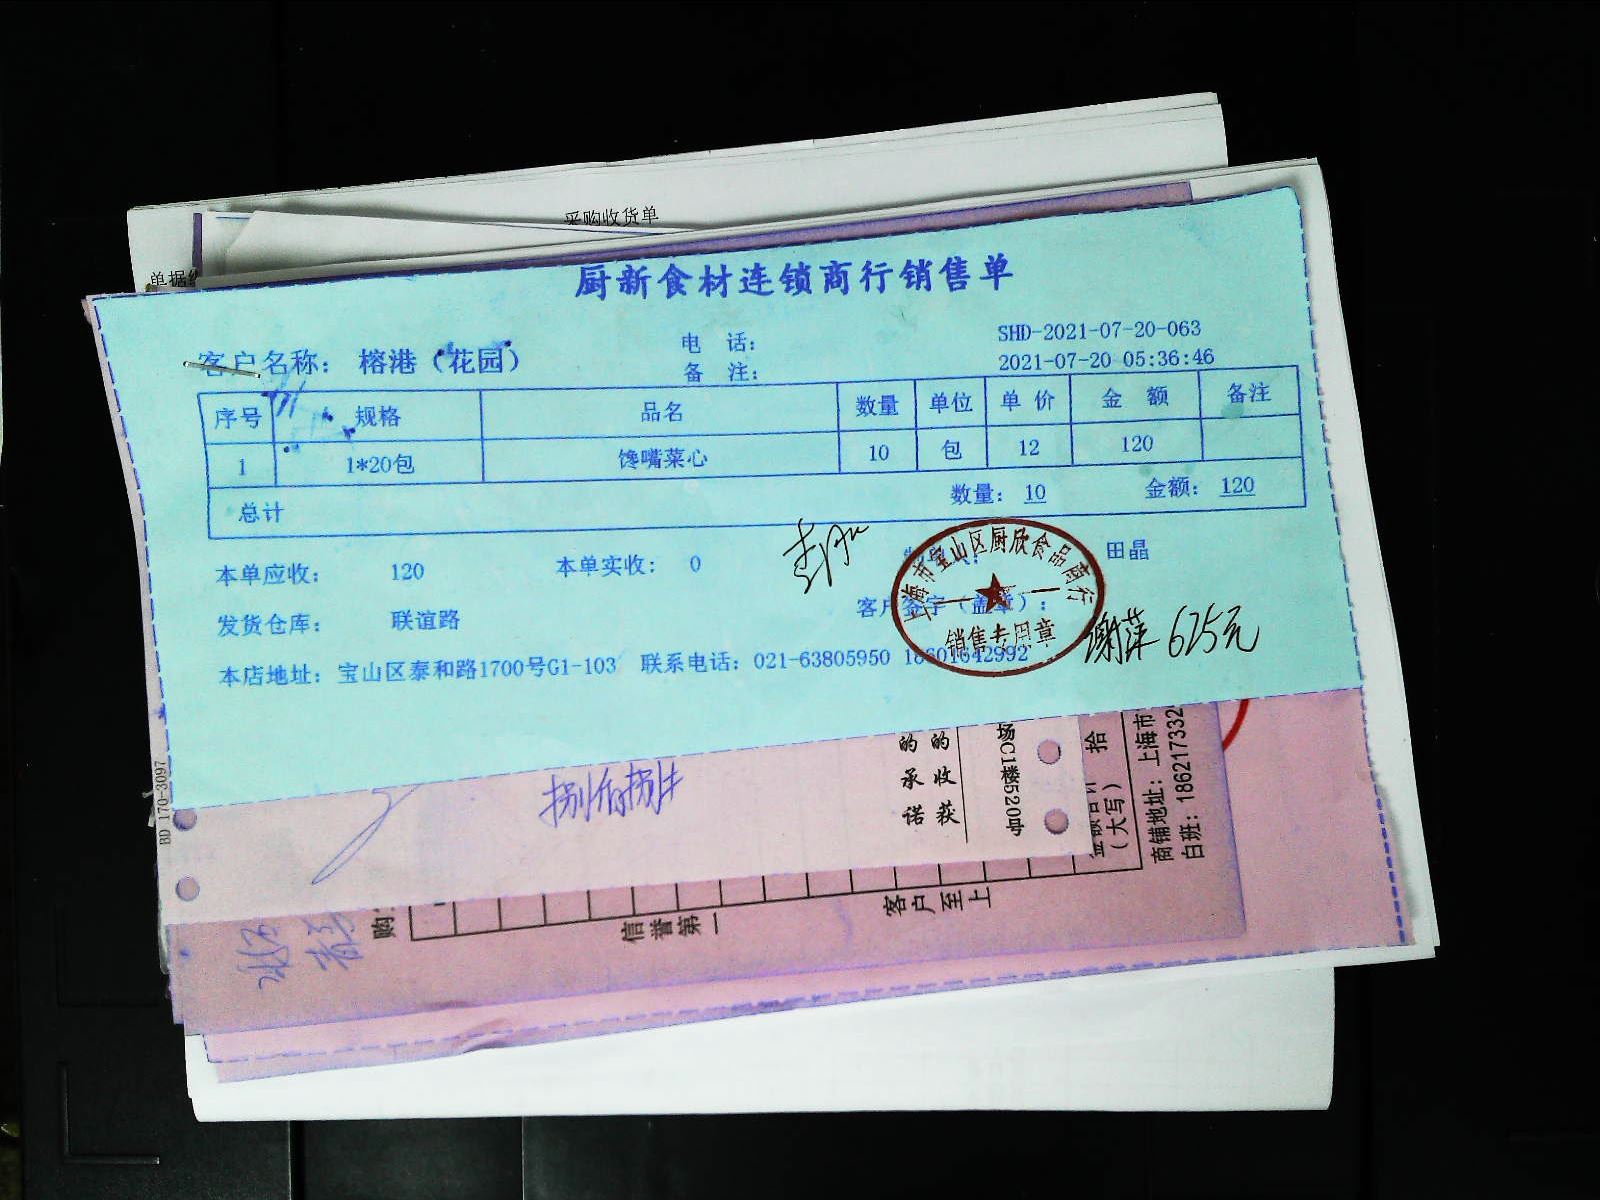 采购收货单
单据
厨新食材连锁商行销售单
客户名称： 榕港（花园）
电 话：
备 注：
SHD-2021-07-20-063
2021-07-20 05:36:46
序号 规格 品名 数量 单位 单价 金额 备注
1 1*20包 馋嘴菜心 10 包 12 120
总计 数量：10 金额：120
本单应收： 120 本单实收： 0 田晶
发货仓库： 联谊路 客户签字（盖章）：
本店地址：宝山区泰和路1700号G1-103 联系电话：021-63805950 18601642992
上海市宝山区厨欣食品商行
销售专用章
谢萍 625元
BD 170-3097
捌佰捌拾
的承诺
的收获
场C1楼520号
拾
（大写）
商铺地址：上海市
白班：186217332
购
信誉第一
客户至上